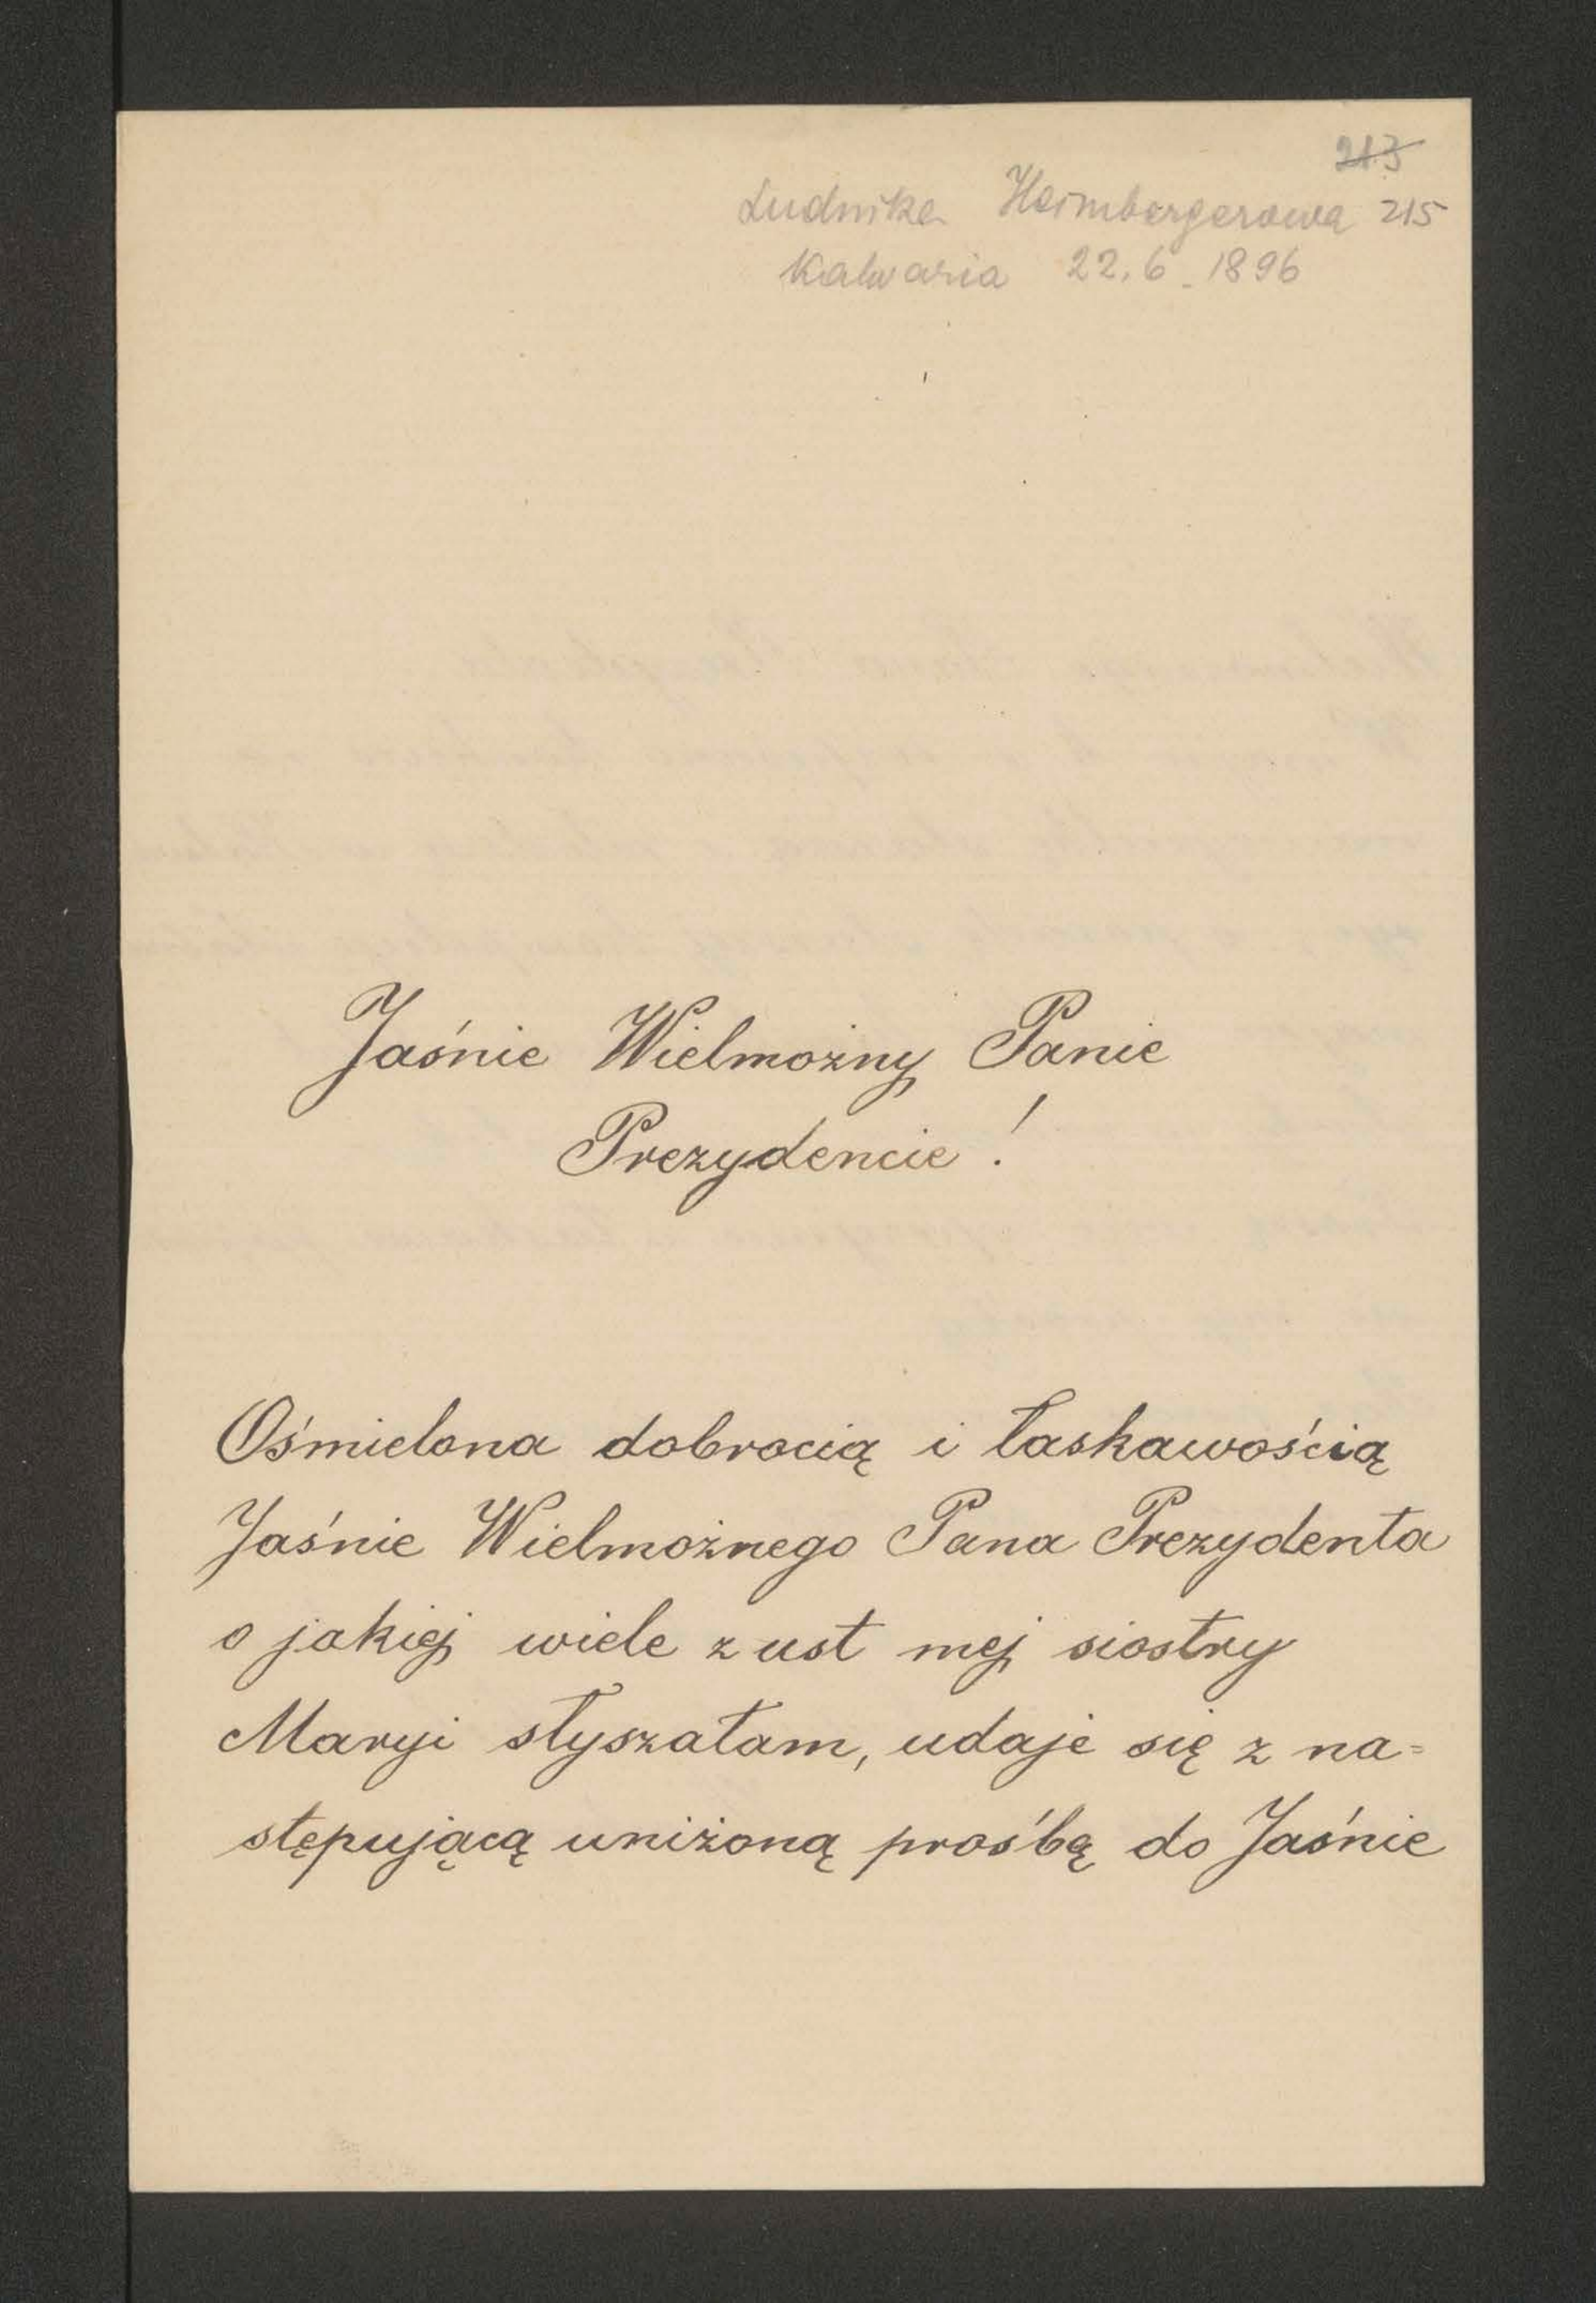 213
Ludwika Heimbergerowa 215
Kalwaria 22.6.1896
Jaśnie Wielmożny Panie
Prezydencie!
Ośmielona dobrocią i łaskawością
Jaśnie Wielmożnego Pana Prezydenta
o jakiej wiele z ust mej siostry
Maryi słyszałam, udaje się z na=
stępującą uniżoną prośbą do Jaśnie